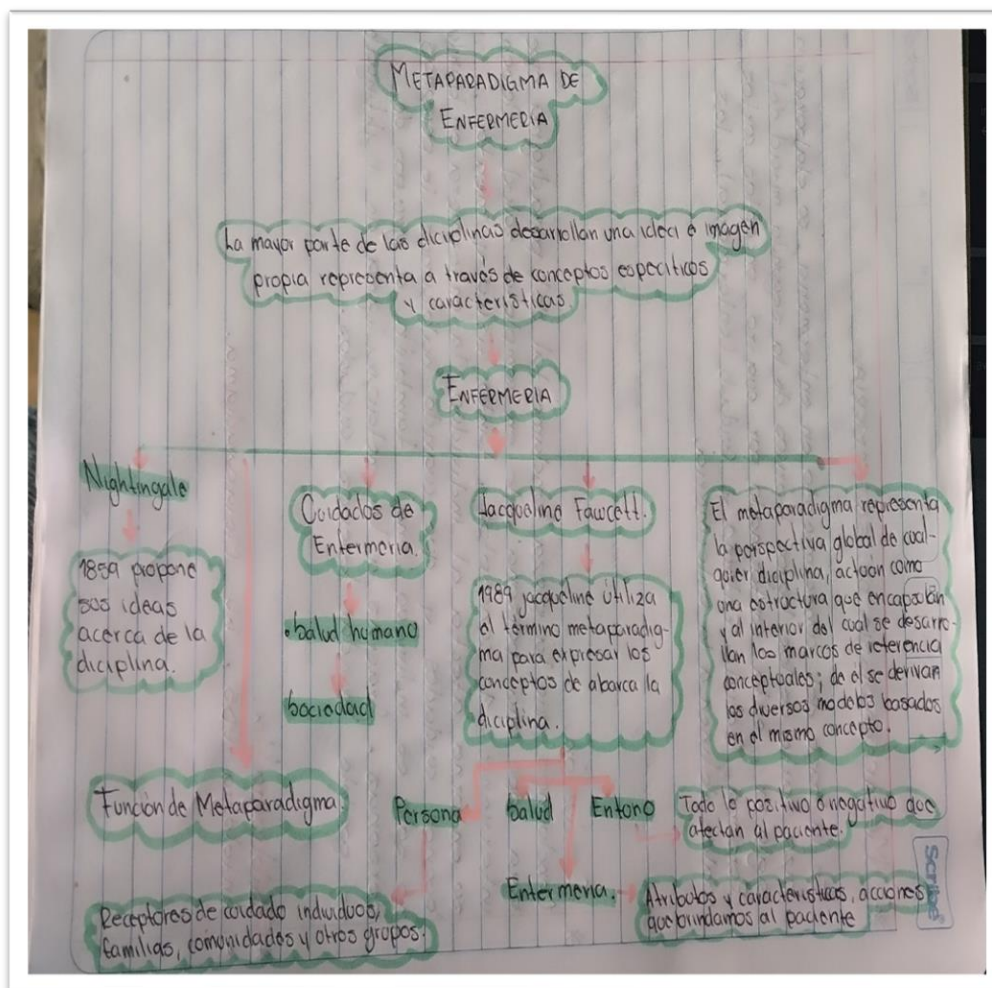 METAPARADIGMA DE
ENFERMERIA
La mayor parte de las diciplinas desarrollan una idea e imagen
propia representa a través de conceptos especificos
y caracteristicas
ENFERMERIA
Nightingale
1859 propone
sus ideas
acerca de la
diciplina.
Cuidados de
Enfermeria.
salud humano
sociedad
Jacqueline Fawcett.
1989 jacqueline utiliza
el término metaparadig-
ma para expresar los
conceptos de abarca la
diciplina.
El metaparadigma representa
la perspectiva global de cual-
quier diciplina, actúan como
una estructura que encapsulan
y al interior del cual se desarro-
llan los marcos de referencia
conceptuales; de el se derivan
los diversos modelos basados
en el mismo concepto.
Función de Metaparadigma.
Persona
Salud
Entono
Todo lo pozitivo o negativo que
afectan al paciente.
Enfermeria.
Atributos y caracteristicas, acciones
que brindamos al paciente
Receptores de cuidado individuos,
familias, comunidades y otros grupos.
Scribe